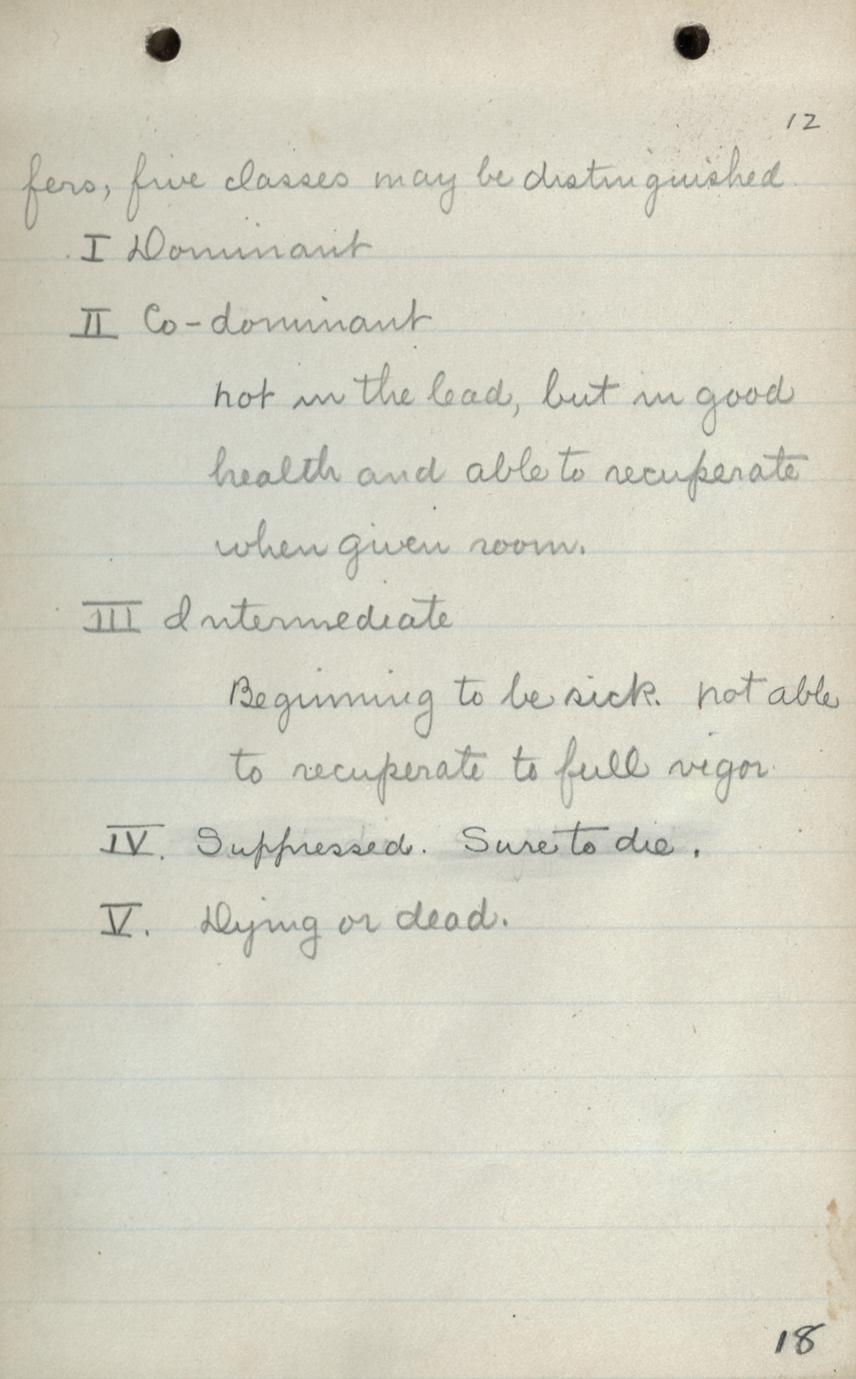 12
fers, five classes may be distinguished
I Dominant
II Co-dominant
not in the lead, but in good
health and able to recuperate
when given room.
III Intermediate
Beginning to be sick. not able
to recuperate to full vigor
IV. Suppressed. Sure to die.
V. Dying or dead.
18